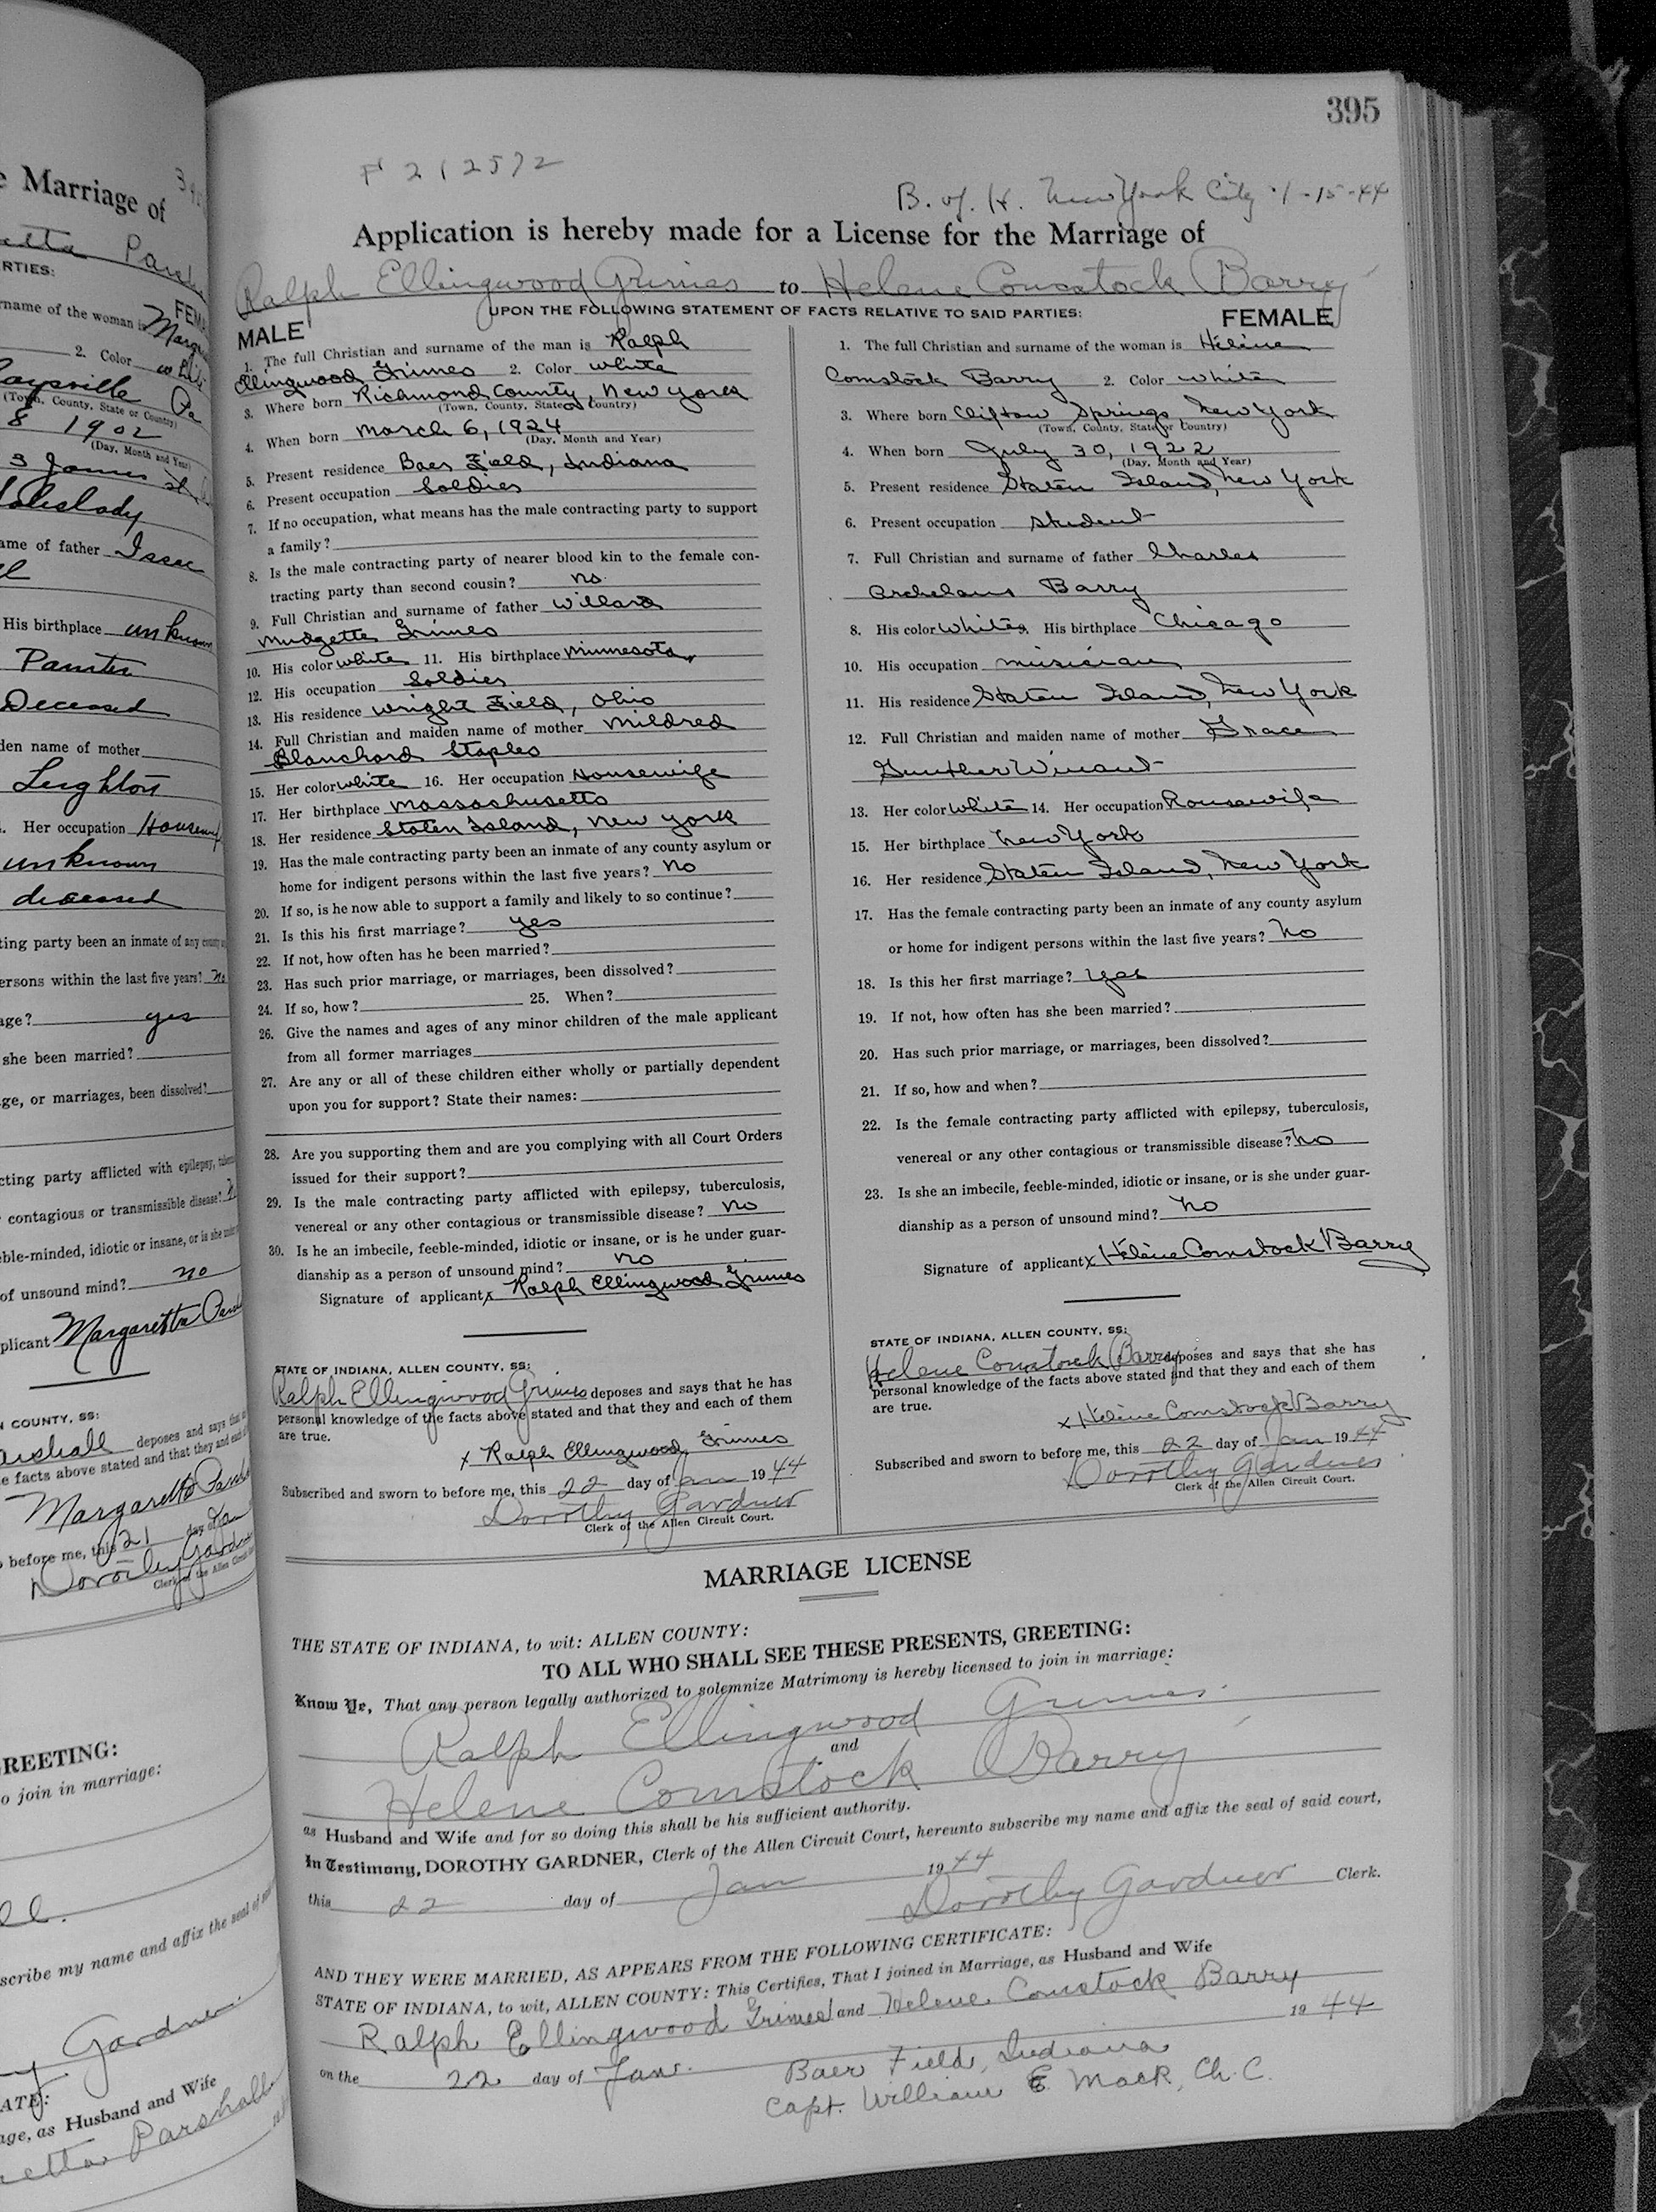 e Marriage of
etta Parsh
RTIES:
FEM
rname of the woman is Marg
2. Color white
aysville Pa
(Town, County, State or Country)
8 1902
(Day, Month and Year)
3 James St
Saleslady
ame of father Isaac
His birthplace unknown
Painter
Deceased
den name of mother
Leighton
. Her occupation Housewif
unknown
deceased
ting party been an inmate of any county
ersons within the last five years? no
age? yes
she been married?
ge, or marriages, been dissolved?
cting party afflicted with epilepsy, tuberc
contagious or transmissible disease?
eble-minded, idiotic or insane, or is she under
of unsound mind? no
plicant Margaretta Parsh
N COUNTY, SS:
arshall deposes and says that
e facts above stated and that they and each of
Margaretta Parsh
o before me, this 21 day of Jan
Dorothy Gardner
Clerk of the Allen Circuit
GREETING:
o join in marriage:
ll.
scribe my name and affix the seal of said
y Gardner
ATE:
age, as Husband and Wife
etta Parshall
395
F 212572
B. of H. New York City 1-15-44
Application is hereby made for a License for the Marriage of
Ralph Ellingwood Grimes to Helene Comstock Barry
UPON THE FOLLOWING STATEMENT OF FACTS RELATIVE TO SAID PARTIES:
MALE
1. The full Christian and surname of the man is Ralph
Ellingwood Grimes 2. Color white
3. Where born Richmond County, New York
(Town, County, State or Country)
4. When born March 6, 1924
(Day, Month and Year)
5. Present residence Baer Field, Indiana
6. Present occupation Soldier
7. If no occupation, what means has the male contracting party to support
a family?
8. Is the male contracting party of nearer blood kin to the female con-
tracting party than second cousin? no.
9. Full Christian and surname of father Willard
Mudgette Grimes
10. His color white 11. His birthplace Minnesota
12. His occupation Soldier
13. His residence Wright Field, Ohio
14. Full Christian and maiden name of mother Mildred
Blanchard Staples
15. Her color white 16. Her occupation Housewife
17. Her birthplace Massachusetts
18. Her residence Staten Island, New York
19. Has the male contracting party been an inmate of any county asylum or
home for indigent persons within the last five years? no
20. If so, is he now able to support a family and likely to so continue?
21. Is this his first marriage? yes
22. If not, how often has he been married?
23. Has such prior marriage, or marriages, been dissolved?
24. If so, how? 25. When?
26. Give the names and ages of any minor children of the male applicant
from all former marriages
27. Are any or all of these children either wholly or partially dependent
upon you for support? State their names:
28. Are you supporting them and are you complying with all Court Orders
issued for their support?
29. Is the male contracting party afflicted with epilepsy, tuberculosis,
venereal or any other contagious or transmissible disease? no
30. Is he an imbecile, feeble-minded, idiotic or insane, or is he under guar-
dianship as a person of unsound mind? no
Signature of applicant x Ralph Ellingwood Grimes
STATE OF INDIANA, ALLEN COUNTY, SS:
Ralph Ellingwood Grimes deposes and says that he has
personal knowledge of the facts above stated and that they and each of them
are true.
x Ralph Ellingwood Grimes
Subscribed and sworn to before me, this 22 day of Jan 1944
Dorothy Gardner
Clerk of the Allen Circuit Court.
FEMALE
1. The full Christian and surname of the woman is Hélène
Comstock Barry 2. Color white
3. Where born Clifton Springs, New York
(Town, County, State or Country)
4. When born July 30, 1922
(Day, Month and Year)
5. Present residence Staten Island, New York
6. Present occupation student
7. Full Christian and surname of father Charles
Archelaus Barry
8. His color white 9. His birthplace Chicago
10. His occupation musician
11. His residence Staten Island, New York
12. Full Christian and maiden name of mother Grace
Gunther Winant
13. Her color white 14. Her occupation Housewife
15. Her birthplace New York
16. Her residence Staten Island, New York
17. Has the female contracting party been an inmate of any county asylum
or home for indigent persons within the last five years? no
18. Is this her first marriage? yes
19. If not, how often has she been married?
20. Has such prior marriage, or marriages, been dissolved?
21. If so, how and when?
22. Is the female contracting party afflicted with epilepsy, tuberculosis,
venereal or any other contagious or transmissible disease? no
23. Is she an imbecile, feeble-minded, idiotic or insane, or is she under guar-
dianship as a person of unsound mind? no
Signature of applicant x Hélène Comstock Barry
STATE OF INDIANA, ALLEN COUNTY, SS:
Helene Comstock Barry deposes and says that she has
personal knowledge of the facts above stated and that they and each of them
are true.
x Hélène Comstock Barry
Subscribed and sworn to before me, this 22 day of Jan 1944
Dorothy Gardner
Clerk of the Allen Circuit Court.
MARRIAGE LICENSE
THE STATE OF INDIANA, to wit: ALLEN COUNTY:
TO ALL WHO SHALL SEE THESE PRESENTS, GREETING:
Know Ye, That any person legally authorized to solemnize Matrimony is hereby licensed to join in marriage:
Ralph Ellingwood Grimes
and
Helene Comstock Barry
as Husband and Wife and for so doing this shall be his sufficient authority.
In Testimony, DOROTHY GARDNER, Clerk of the Allen Circuit Court, hereunto subscribe my name and affix the seal of said court,
this 22 day of Jan 1944
Dorothy Gardner Clerk.
AND THEY WERE MARRIED, AS APPEARS FROM THE FOLLOWING CERTIFICATE:
STATE OF INDIANA, to wit, ALLEN COUNTY: This Certifies, That I joined in Marriage, as Husband and Wife
Ralph Ellingwood Grimes and Helene Comstock Barry
on the 22 day of Jan. 1944
Baer Field, Indiana
Capt. William E. Mack, Ch. C.